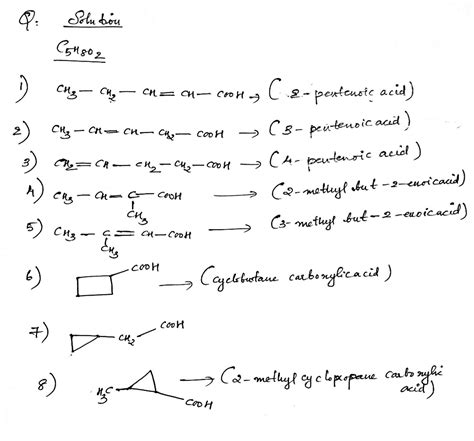 Q: Solution
C5H8O2
1) CH3 — CH2 — CH = CH — COOH → (2-pentenoic acid)
2) CH3 — CH = CH — CH2 — COOH → (3-pentenoic acid)
3) CH2 = CH — CH2 — CH2 — COOH → (4-pentenoic acid)
4) CH3 — CH = C — COOH → (2-methyl but-2-enoic acid)
CH3
5) CH3 — C = CH — COOH → (3-methyl but-2-enoic acid)
CH3
6) COOH → (cyclobutane carboxylic acid)
7) CH2 COOH
8) H3C COOH → (2-methyl cyclopropane carboxylic acid)